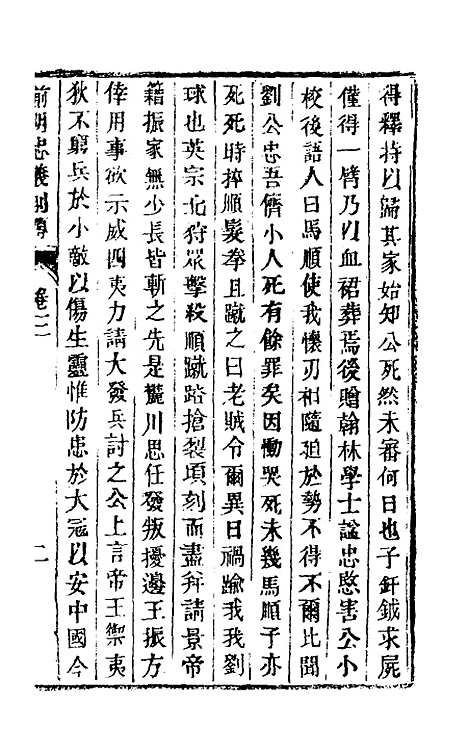 得釋持以歸其家始知公死然未審何日也子釬鉞求屍
僅得一臂乃以血裙葬焉後贈翰林學士謚忠愍害公小
校後語人曰馬順使我懷刃相隨廹於勢不得不爾比聞
劉公忠吾儕小人死有餘罪矣因慟哭死未幾馬順子亦
死死時捽順髮拳且蹴之曰老賊令爾異日禍踰我我劉
球也英宗北狩眾擊殺順蹴踏搶裂頃刻而盡并請景帝
籍振家無少長皆斬之先是麓川思任發叛擾邊王振方
倖用事欲示威四夷力請大發兵討之公上言帝王禦夷
狄不窮兵於小敵以傷生靈惟防患於大寇以安中國今
前朝忠義列傳 卷二 二